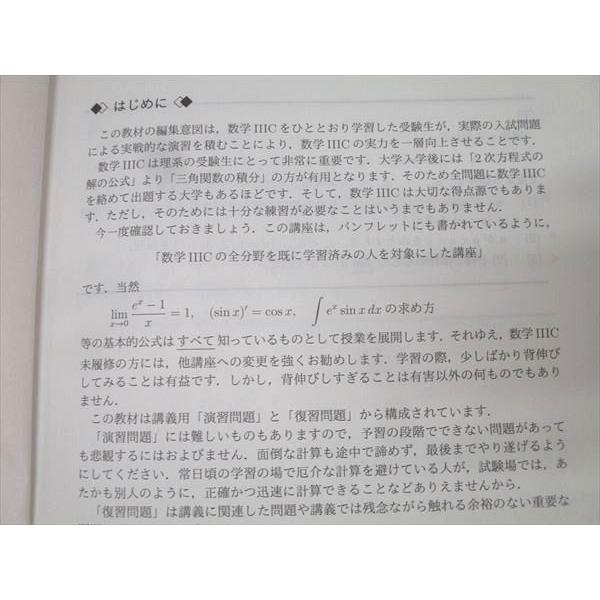 ◆◇ はじめに ◇◆
この教材の編集意図は，数学 IIIC をひととおり学習した受験生が，実際の入試問題
による実戦的な演習を積むことにより，数学 IIIC の実力を一層向上させることです．
数学 IIIC は理系の受験生にとって非常に重要です．大学入学後には「2 次方程式の
解の公式」より「三角関数の積分」の方が有用となります．そのため全問題に数学 IIIC
を絡めて出題する大学もあるほどです．そして，数学 IIIC は大切な得点源でもありま
す．ただし，そのためには十分な練習が必要なことはいうまでもありません．
今一度確認しておきましょう．この講座は，パンフレットにも書かれているように，
「数学 IIIC の全分野を既に学習済みの人を対象にした講座」
です．当然
lim_{x→0} (e^x − 1)/x = 1, (sin x)′ = cos x, ∫ e^x sin x dx の求め方
等の基本的公式はすべて知っているものとして授業を展開します．それゆえ，数学 IIIC
未履修の方には，他講座への変更を強くお勧めします．学習の際，少しばかり背伸び
してみることは有益です．しかし，背伸びしすぎることは有害以外の何ものでもあり
ません．
この教材は講義用「演習問題」と「復習問題」から構成されています．
「演習問題」には難しいものもありますので，予習の段階でできない問題があって
も悲観するにはおよびません．面倒な計算も途中で諦めず，最後までやり遂げるよう
にしてください．常日頃の学習の場で厄介な計算を避けている人が，試験場では，あ
たかも別人のように，正確かつ迅速に計算できることなどありえませんから．
「復習問題」は講義に関連した問題や講義では残念ながら触れる余裕のない重要な